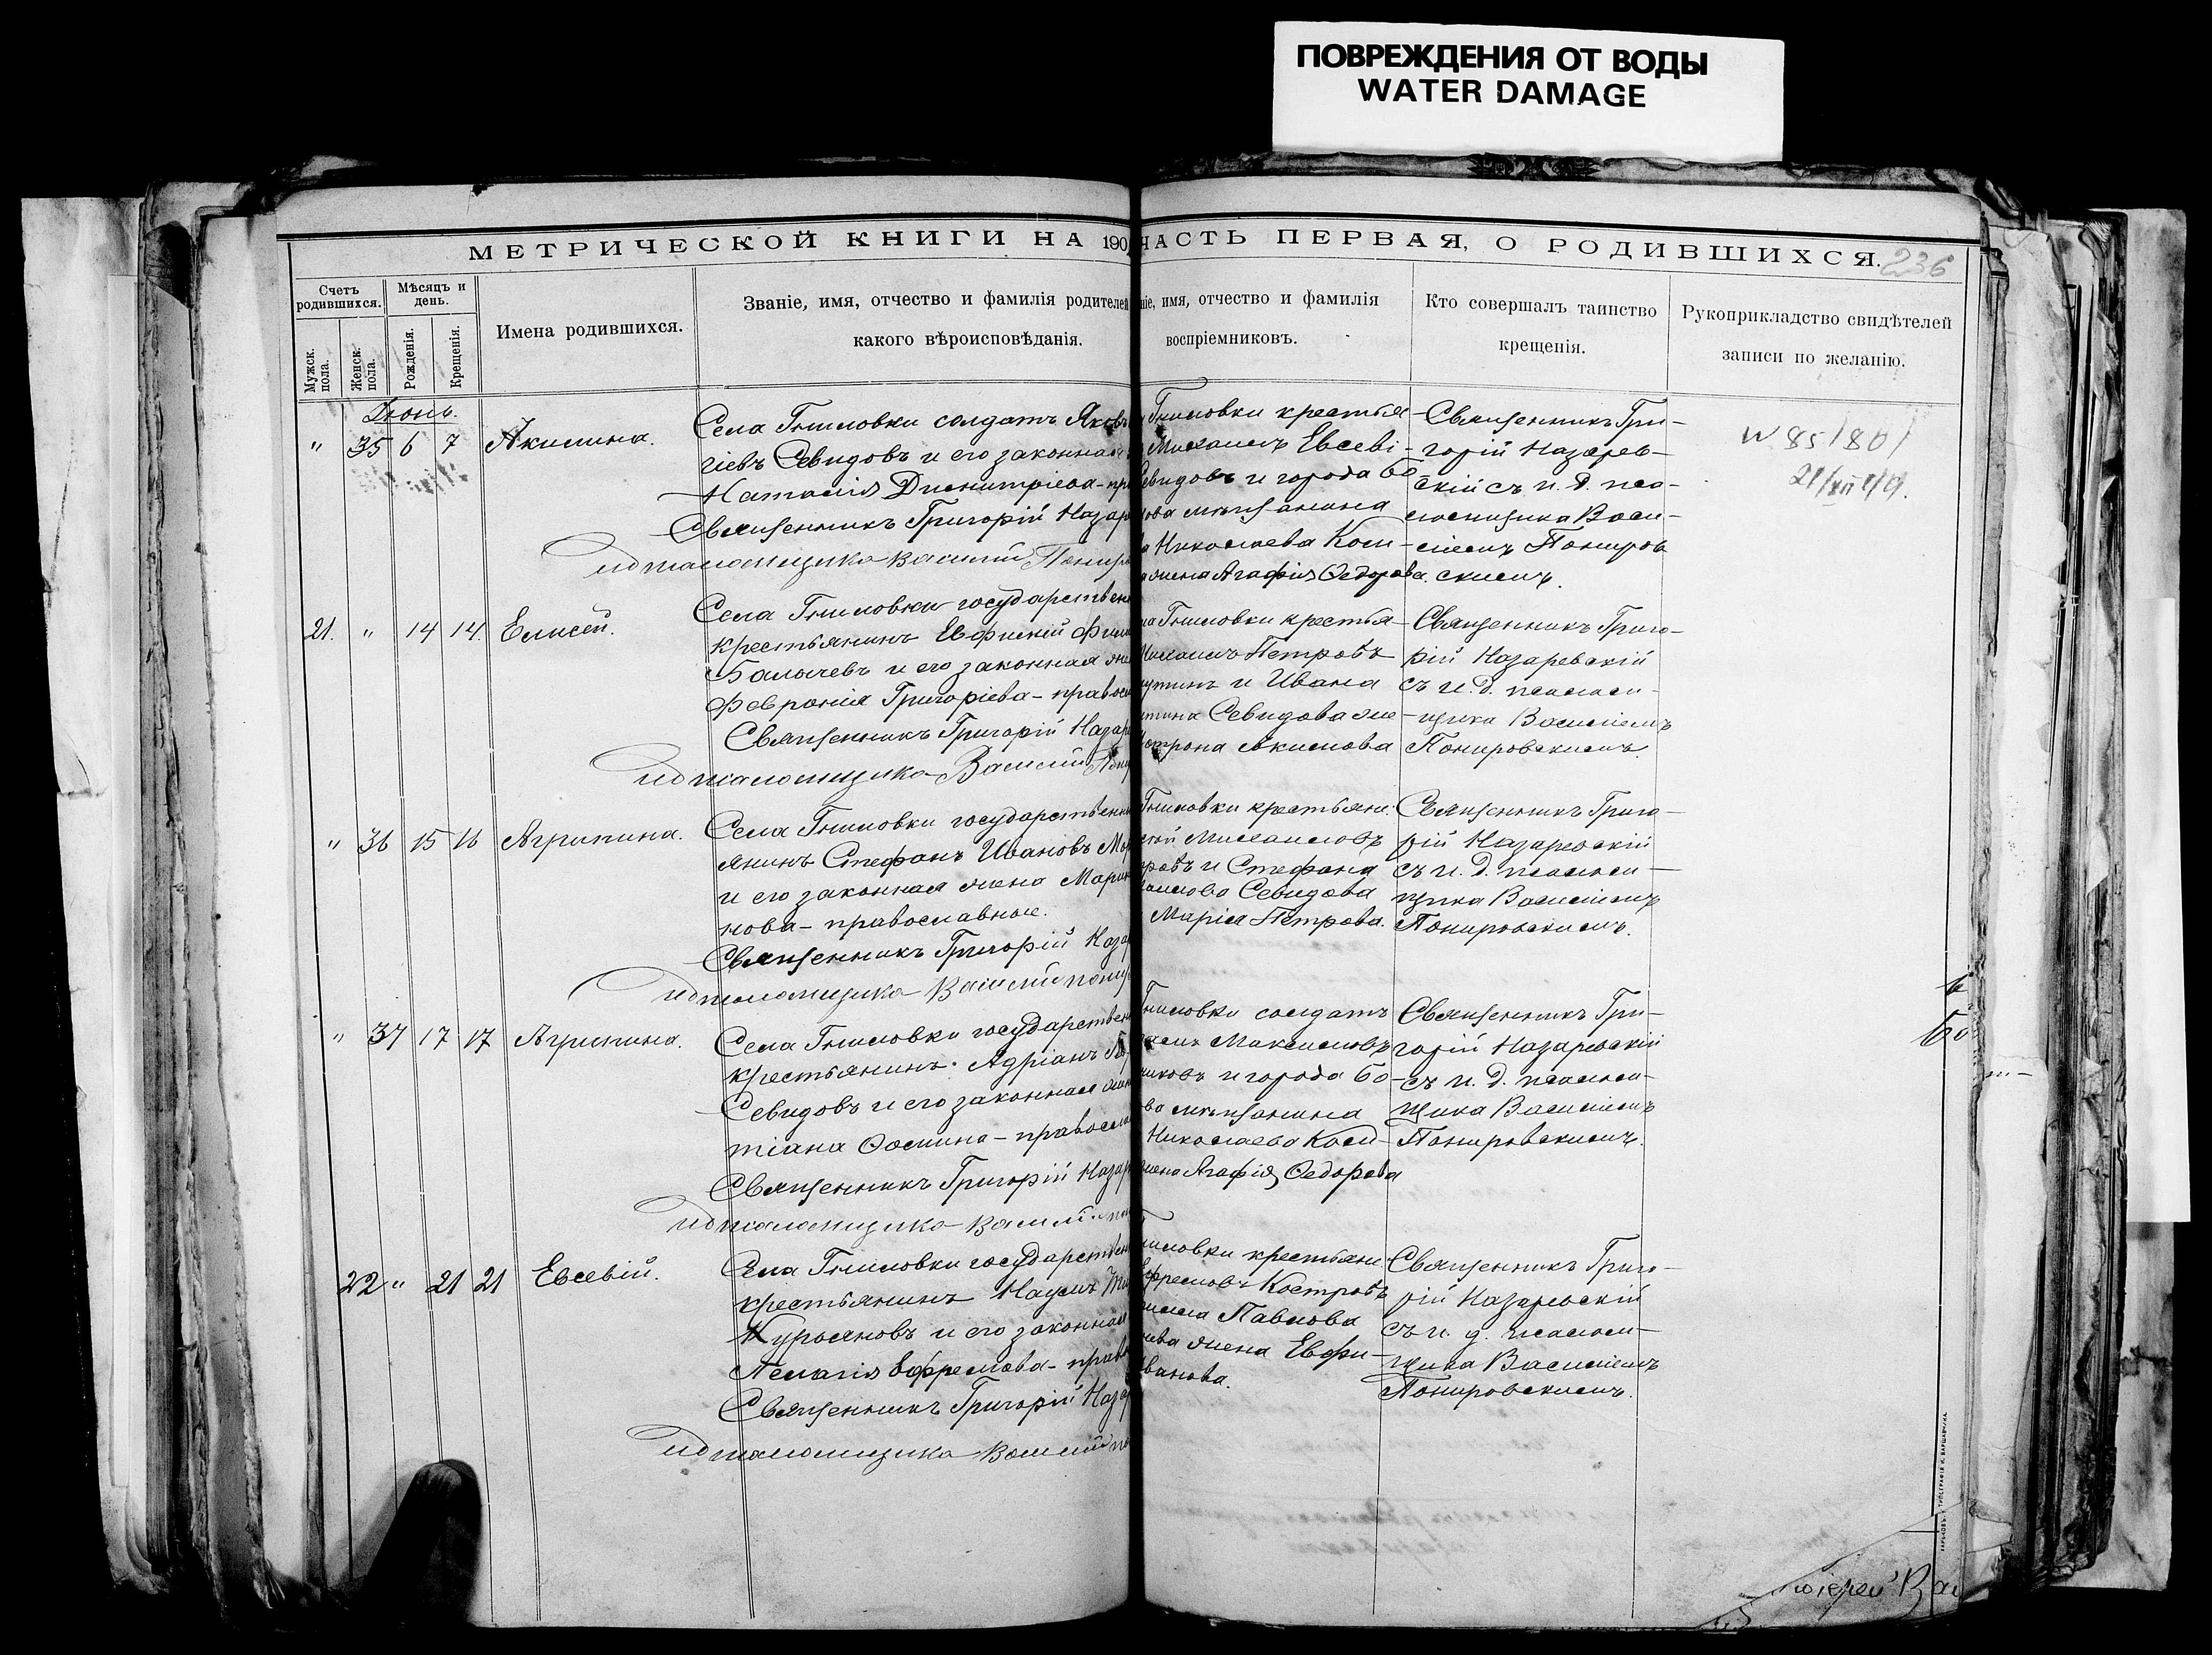 ПОВРЕЖДЕНИЯ ОТ ВОДЫ
WATER DAMAGE
МЕТРИЧЕСКОЙ КНИГИ НА 190
ЧАСТЬ ПЕРВАЯ, О РОДИВШИХСЯ.
236
Счетъ родившихся.
Мужск. пола.
Женск. пола.
Мѣсяцъ и день.
Рожденія.
Крещенія.
Имена родившихся.
Званіе, имя, отчество и фамилія родителей
какого вѣроисповѣданія.
ніе, имя, отчество и фамилія
воспріемниковъ.
Кто совершалъ таинство
крещенія.
Рукоприкладство свидѣтелей
записи по желанію.
Іюнь.
" 35 6 7 Акилина.
Села Гниловки солдатъ Яковъ
гіевъ Севидовъ и его законная
Наталія Димитріева - пр
Священникъ Григорій Назар
ид псаломщика Василій Понир
Гниловки крестья-
Михаилъ Евсеві-
Севидовъ и города Бо-
ова мѣщанина
Николаева Коси-
жена Агафія Ѳедорова.
Священникъ Гри-
горій Назарев-
скій съ и. д. пса-
ломщика Васи-
ліемъ Пониров
скимъ.
N 85/80/
21. " 14 14. Елисей.
Села Гниловки государствен
крестьянинъ Евфимій Фили
Балычевъ и его законная же
Февронія Григоріева - правосл
Священникъ Григорій Назар
ид псаломщика Василій Пони
Гниловки крестья-
Михаилъ Петровъ
и Ивана
Севидова же-
Акимова
Священникъ Григо-
рій Назаревскій
съ и. д. псалом-
щика Василіемъ
Понировскимъ.
" 36 15 16 Агрипина.
Села Гниловки государственн
янинъ Стефанъ Ивановъ
и его законная жена Марин
нова - православные.
Священникъ Григорій Наза
ид псаломщика Василій Пони
Гниловки крестьяни
Михаиловъ
ровъ и Стефана
Севидова
Марія Петрова.
Священникъ Григо-
рій Назаревскій
съ и. д. псалом-
щика Василіемъ
Понировскимъ.
" 37 17 17 Агрипина.
Села Гниловки государствен
крестьянинъ Адріанъ
Севидовъ и его законная жен
тіана Ѳомина - правосла
Священникъ Григорій Назар
ид псаломщика Василій По
Гниловки солдатъ
Максимовъ
никовъ и города Бо-
ва мѣщанина
Николаева Коси-
жена Агафія Ѳедорова
Священникъ Гри-
горій Назаревскій
съ и. д. псалом-
щика Василіемъ
Понировскимъ.
22 " 21 21 Евсевій.
Села Гниловки государствен
крестьянинъ Наумъ
Курояновъ и его законная
Пелагія Ефремова - право
Священникъ Григорій Назар
ид псаломщика Василій По
Гниловки крестьяни
Ефремовъ Костровъ
Павлова
жена Евфи-
Иванова.
Священникъ Григо-
рій Назаревскій
съ и. д. псалом-
щика Василіемъ
Понировскимъ.